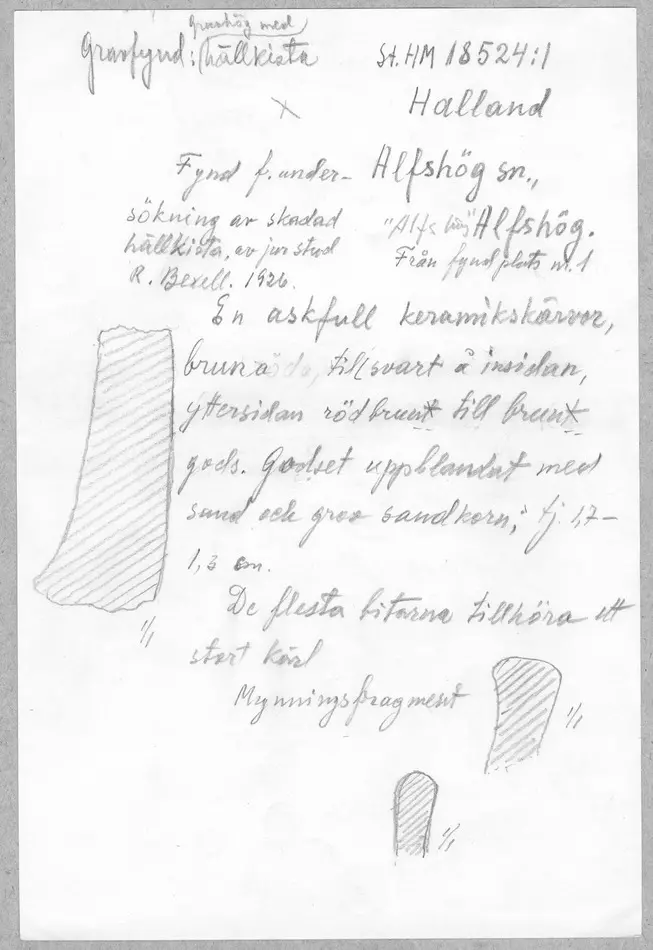 Gravhög med
Gravfynd: hällkista
St. HM 18524:1
Halland
Fynd f. under-
sökning av skadad
hällkista, av jur stud
R. Bexell. 1926.
Alfshög sn.,
"Alfs hög" Alfshög.
Från fyndplats nr. 1
En askfull keramikskärvor,
bruna till svart å insidan,
yttersidan rödbrunt till brunt
gods. Godset uppblandat med
sand och grov sandkorn; tj. 1,7-
1,3 cm.
De flesta bitarna tillhöra ett
stort kärl
1/1
Mynningsfragment
1/1
1/1